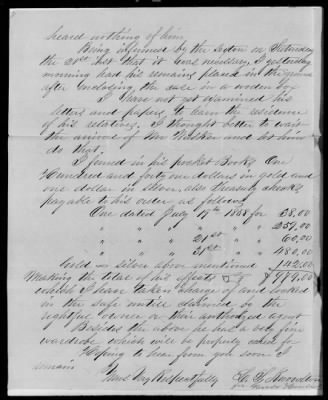 heard nothing of him
Being informed by the Sexton on Saturday
the 21st Inst that it was necessary I yesterday
morning had his remains placed in the ground
after enclosing the case in a wooden box
I have not yet examined his
letters and papers to learn the residence
of his relatives. I thought better to wait
the arrival of Mr Walker and let him
do that,
I found in his pocket Book, One
Hundred and forty one dollars in gold and
one dollar in silver, also Treasury checks
payable to his order as follows,
One dated July 19th 1858 for 38,00
" " " " " 259,00
" " " 21st " " 60,00
" " " 21st " " 480,00
Gold & Silver above mentioned 142,00
Making the total of his effects $979,00
which I have taken charge of and locked
in the safe untill claimed by the
rightful owner or their authorized agent
Besides the above he has a very fine
wardrobe which will be properly cared for
Hoping to hear from you soon I
remain
Yours Very Respectfully